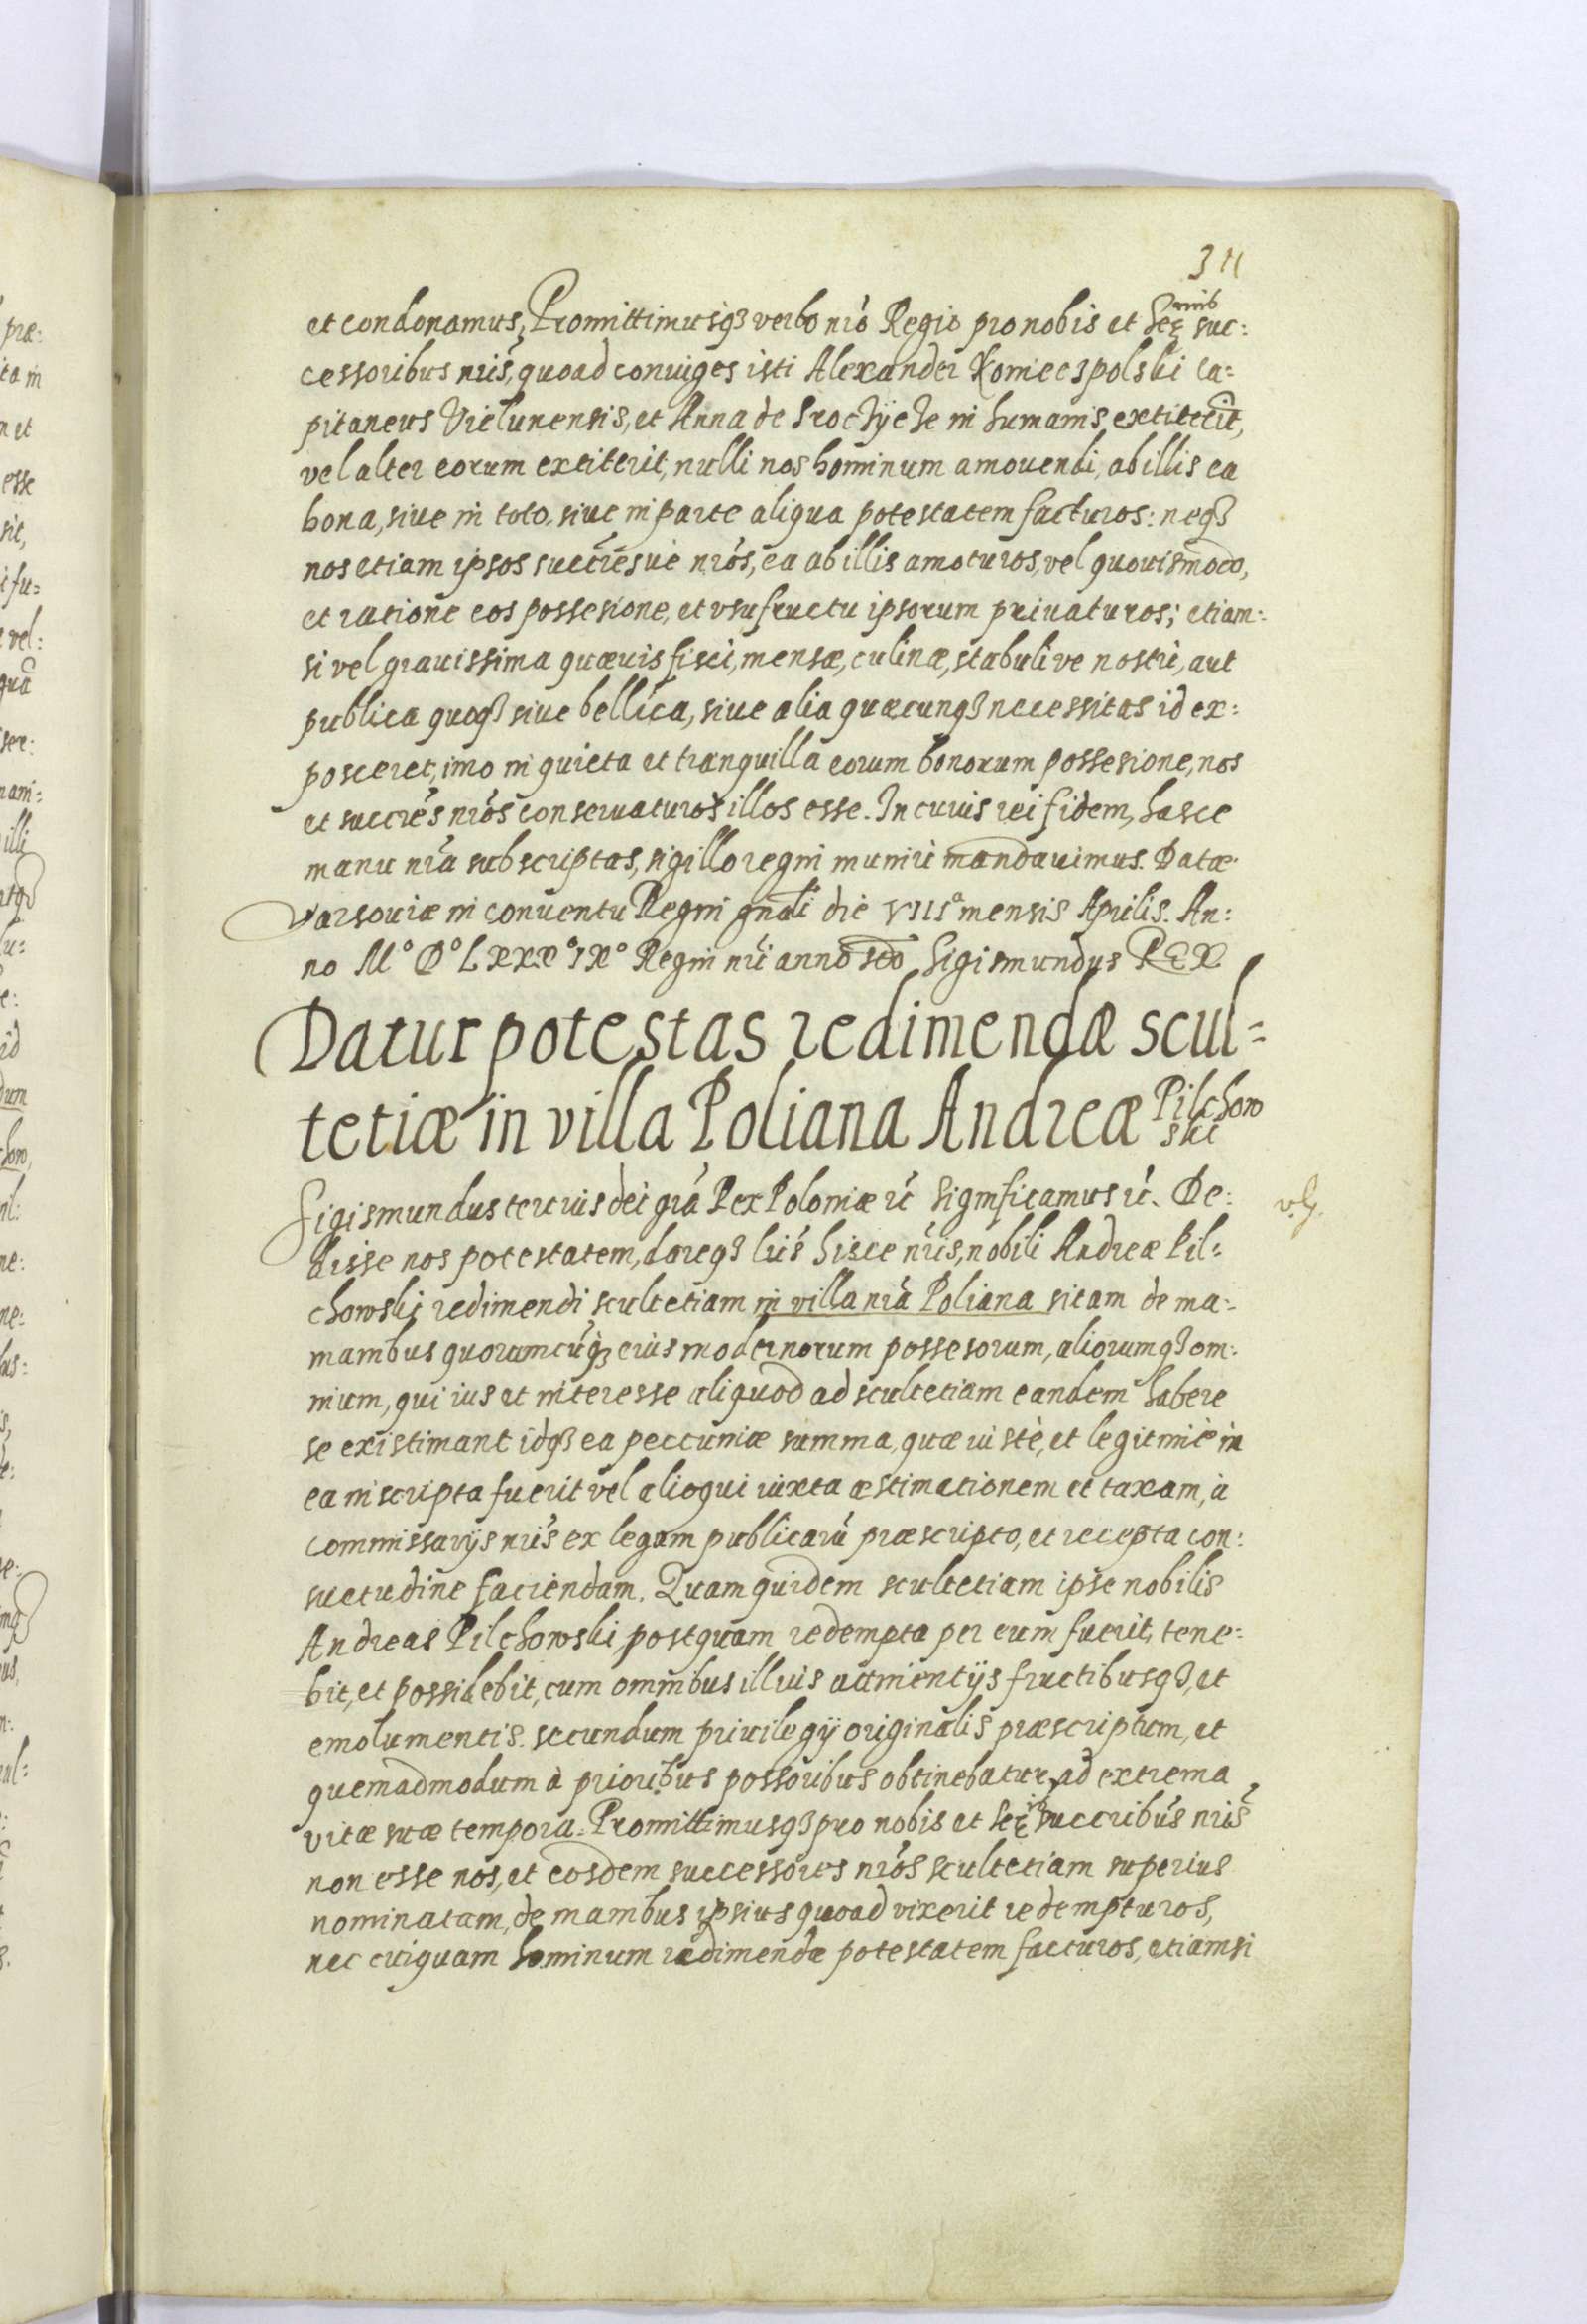 311
et condonamus, Promittimusqȝ verbo nrō Regio pro nobis et Serenib suc:
cessoribus nris̃, quoad coniuges isti Alexander Koniecȝpolski Ca:
pitaneus Vielunensis, et Anna de in humanis extiterit,
vel alter eorum extiterit, nulli nos hominum amouendi, ab illis ea
bona, siue in toto, siue in parte aliqua potestatem facturos: neqȝ
nos etiam ipsos succr̃esue nrõs, ea ab illis amoturos, vel quouismodo,
et ratione eos possesione, et vsufructu ipsorum priuaturos; etiam:
si vel grauissima quæuis fisci, mensæ, culinæ, stabuli ve nostri, aut
publica quoqȝ siue bellica, siue alia quæcunqȝ necessitas id ex:
posceret, imo in quieta et tranquilla eorum bonorum possesione, nos
et succrẽs nrõs conseruaturos illos esse. In cuius rei fidem, hasce
manu nrã subscriptas, sigillo regni muniri mandauimus. Datæ
Varsouiæ in conuentu Regni gnãli die VIIIª mensis Aprilis. An:
no M° D° LXXX° IX° Regni nri anno scdõ Sigismundus REX
Datur potestas redimendæ scul=
tetiæ in villa Poliana Andreæ Pilchow
ski
Sigismundus tertius dei grã Rex Poloniæ rć significamus rć. De:
v.g.
disse nos potestatem, dareqȝ lrís hisce nris, nobili Andreæ Pil:
chowski redimendi scultetiam in villa nrã Poliana sitam de ma:
manibus quorumcũqȝ eius modernorum possesorum, aliorumqȝ om:
nium, qui ius et interesse aliquod ad scultetiam eandem habere
se existimant idqȝ ea peccuniæ summa, quæ iustè, et legitimè in
ea inscripta fuerit vel alioqui iuxta æstimationem et taxam, à
commissarijs nrís ex legum publicarũ præscripto, et recepta con:
suetudine faciendam. Quam quidem scultetiam ipse nobilis
Andreas Pilchowski, postquam redempta per eum fuerit, tene:
bit, et possidebit, cum omnibus illius attinentijs fructibusqȝ, et
emolumentis. secundum priuilegij originalis præscriptum, et
quemadmodum à prioribus possoribus obtinebatur, ad extrema
vitæ suæ tempora. Promittimusqȝ pro nobis et Serib succribus nris̃
non esse nos, et eosdem successores nrõs scultetiam superius
nominatam, de manibus ipsius quoad vixerit redempturos,
nec cuiquam hominum redimendæ potestatem facturos, etiamsi